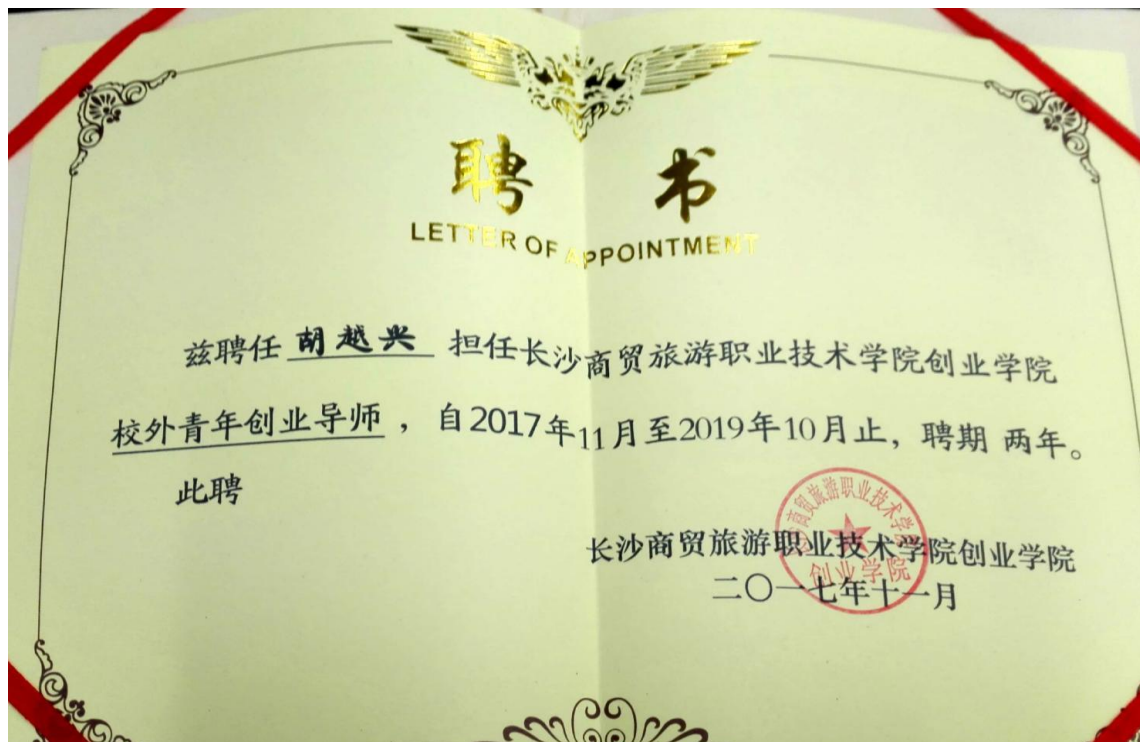 聘书
LETTER OF APPOINTMENT
兹聘任 胡越兴 担任长沙商贸旅游职业技术学院创业学院
校外青年创业导师，自2017年11月至2019年10月止，聘期 两年。
此聘
长沙商贸旅游职业技术学院创业学院
二〇一七年十一月
长沙商贸旅游职业技术学院
创业学院